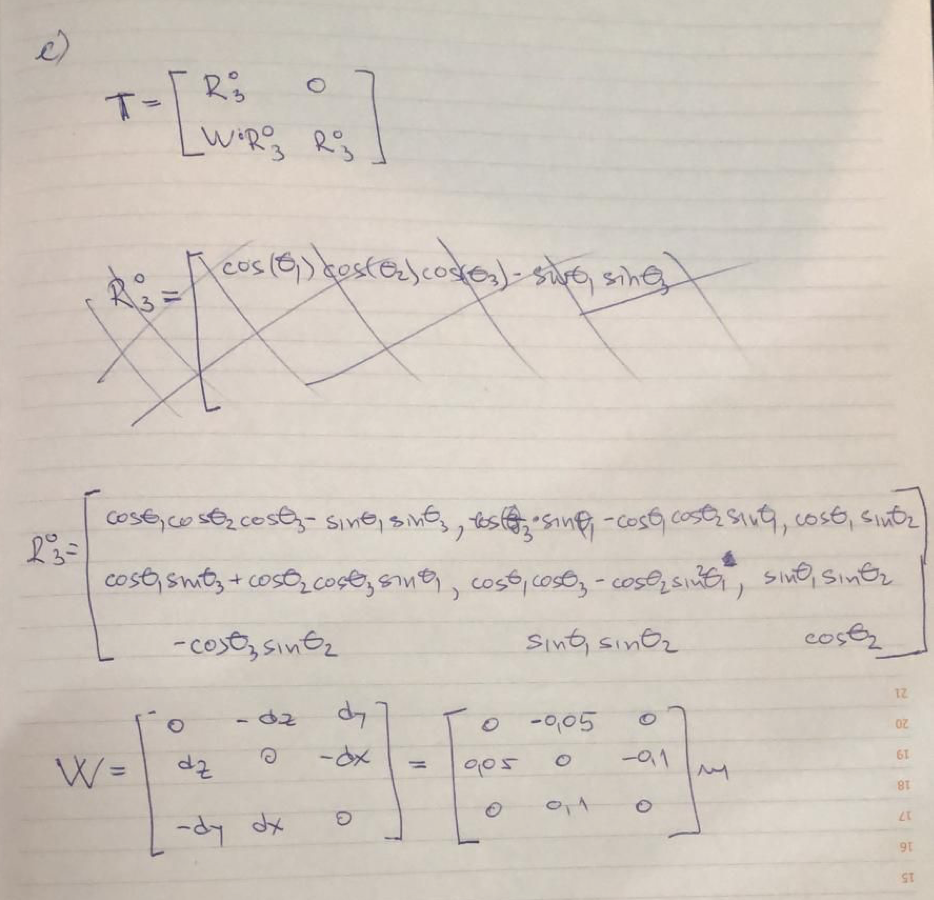 c)
T = [ R₃⁰ 0
W·R₃⁰ R₃⁰ ]
R₃⁰ = [ cos(θ₁) cos(θ₂) cos(θ₃) - sinθ₁ sinθ₃
R₃⁰ = [ cosθ₁cosθ₂cosθ₃ - sinθ₁ sinθ₃ , cosθ₃·sinθ₁ - cosθ₁cosθ₂sinθ₁, cosθ₁ sinθ₂
cosθ₁sinθ₃ + cosθ₂cosθ₃sinθ₁ , cosθ₁cosθ₃ - cosθ₂sin²θ₁ , sinθ₁sinθ₂
-cosθ₃sinθ₂ sinθ₁sinθ₂ cosθ₂ ]
W = [ 0 -dz dy ] = [ 0 -0,05 0 ]
dz 0 -dx 0,05 0 -0,1 m
-dy dx 0 0 0,1 0
21
20
19
18
17
16
15